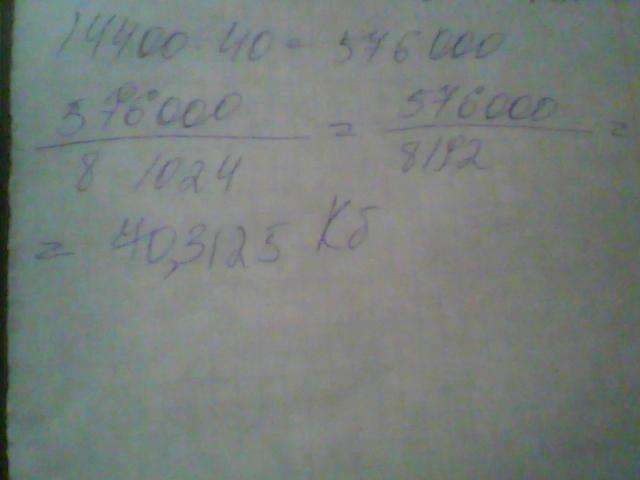 14400 40 = 576000
576000 / 8 1024 = 576000 / 8192 =
= 70,3125 Кб